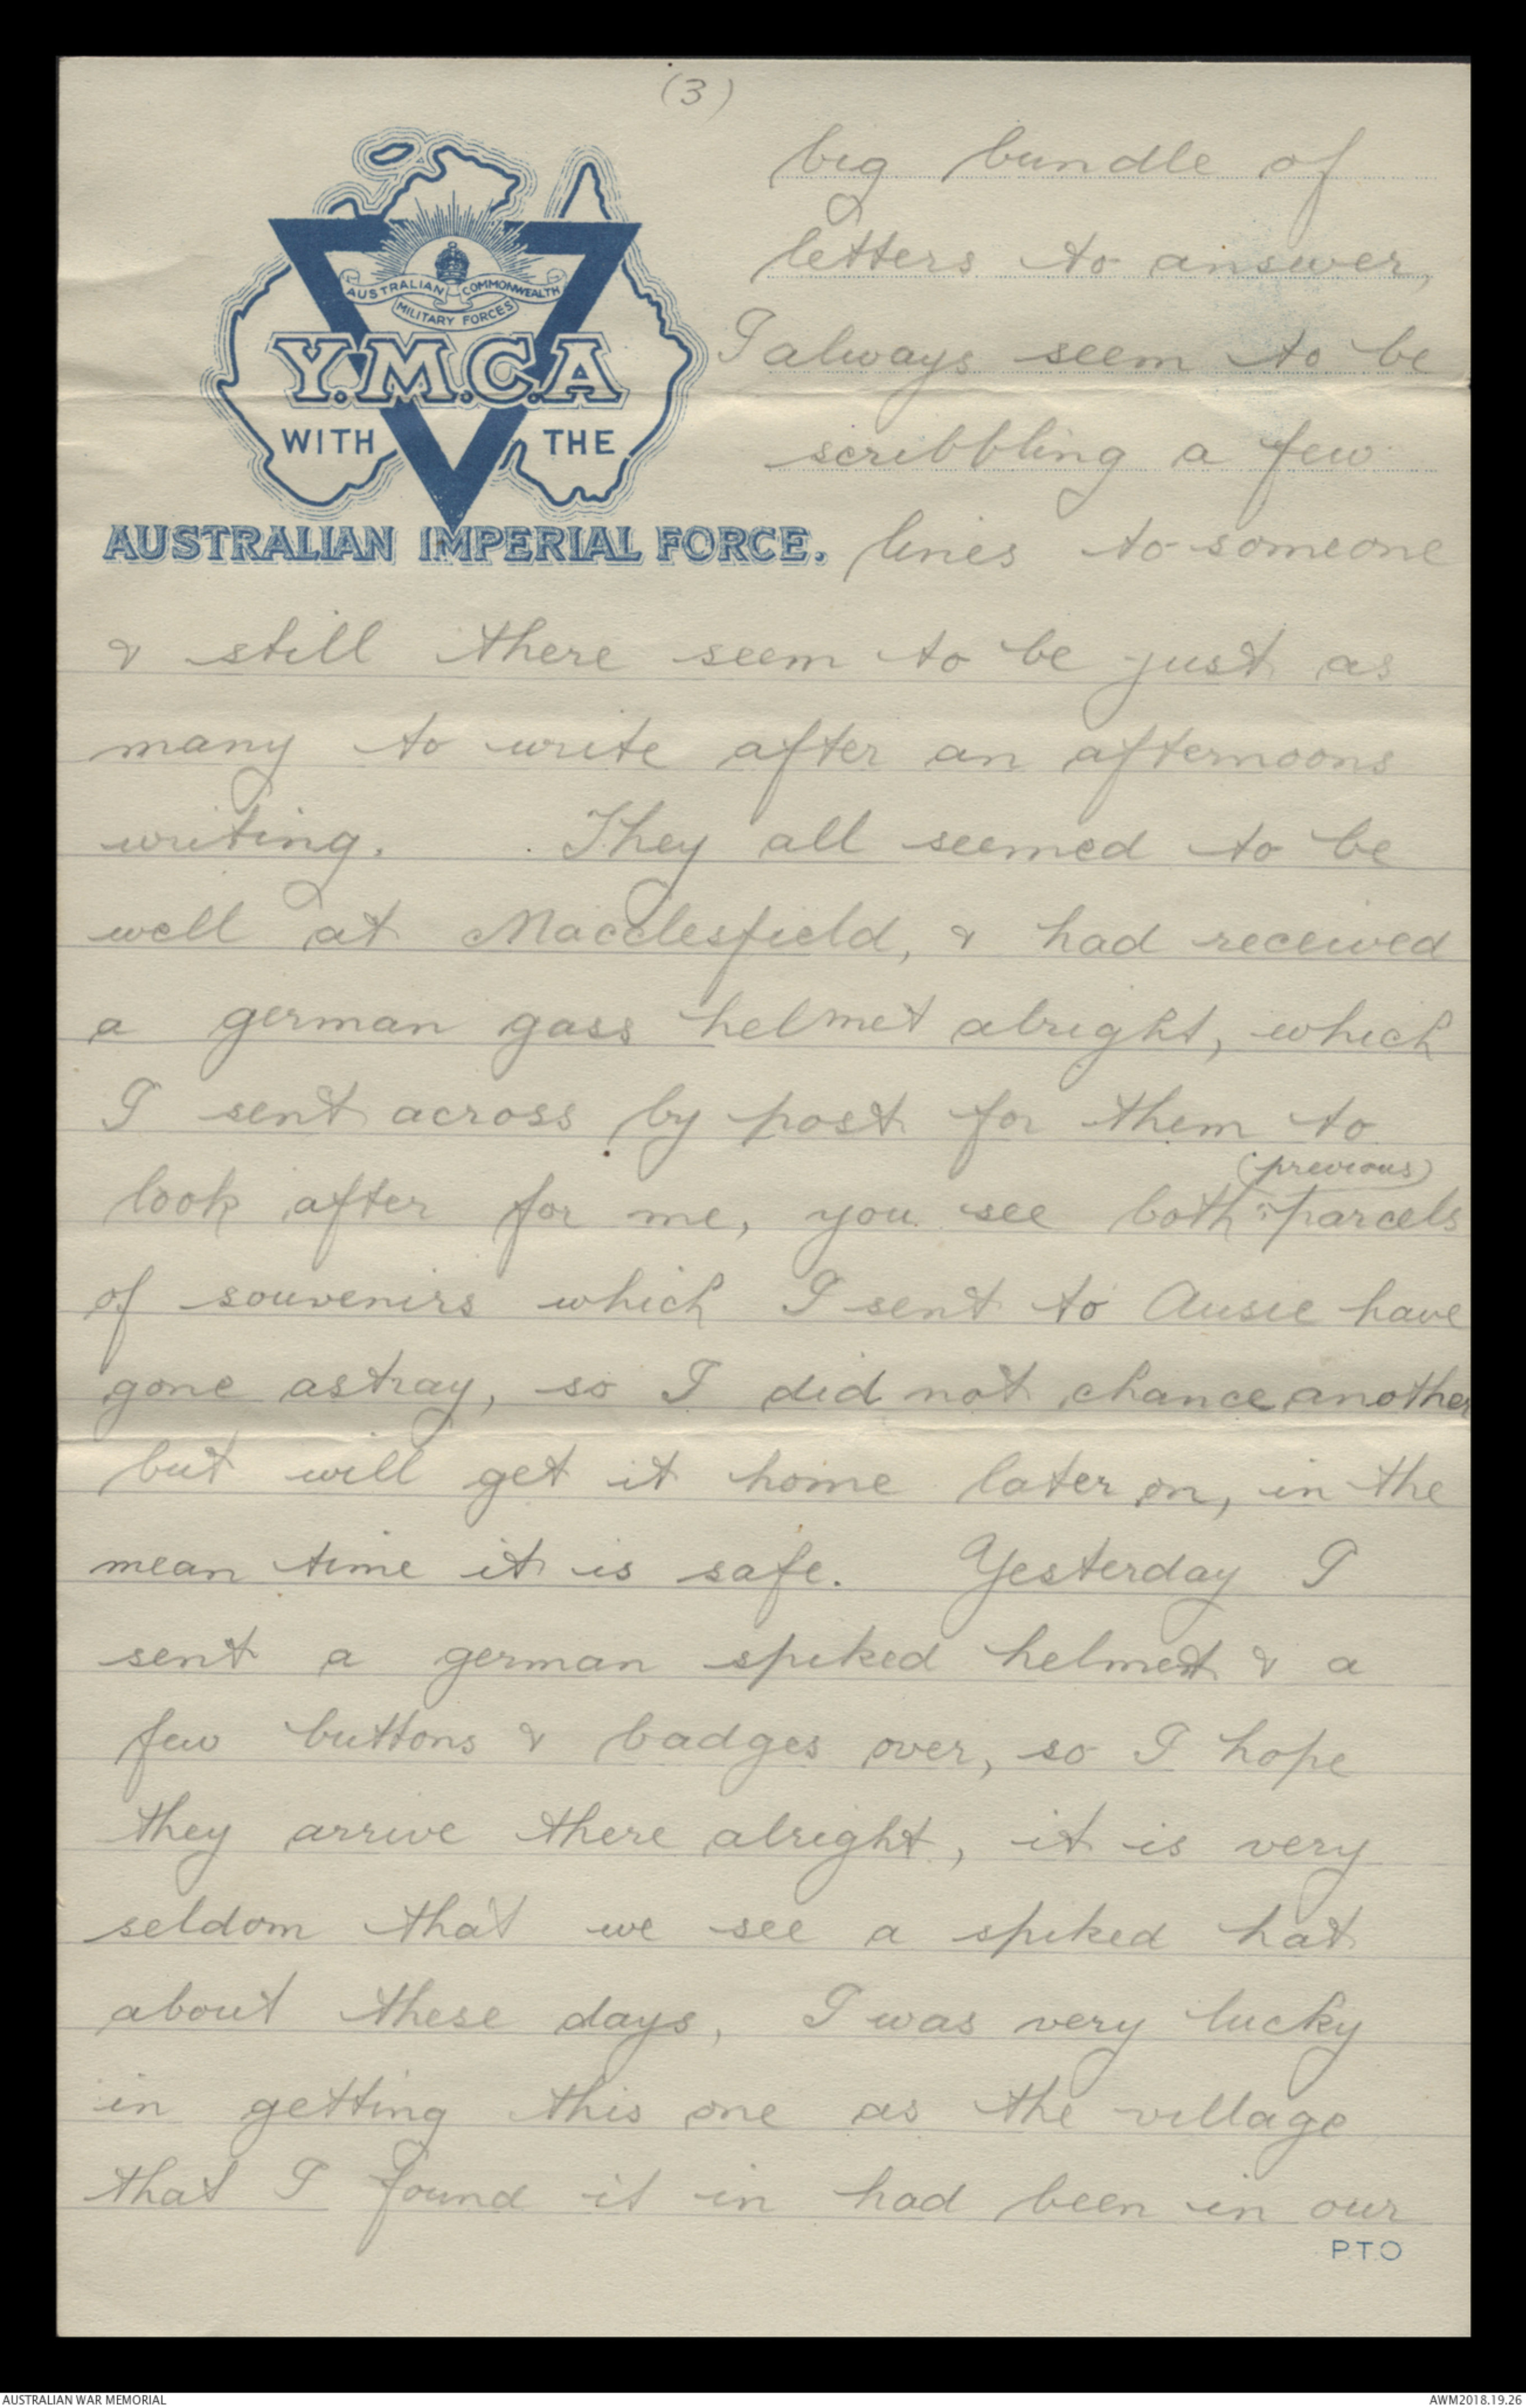 (3)
AUSTRALIAN COMMONWEALTH
MILITARY FORCES
Y.M.C.A
WITH THE
AUSTRALIAN IMPERIAL FORCE.
big bundle of
letters to answer,
I always seem to be
scribbling a few
lines to someone
& still there seem to be just as
many to write after an afternoons
writing. They all seemed to be
well at Macclesfield, & had received
a german gass helmet alright, which
I sent across by post for them to
(previous)
look after for me, you see both parcels
of souvenirs which I sent to Ausie have
gone astray, so I did not chance another
but will get it home later on, in the
mean time it is safe. Yesterday I
sent a german spiked helmet & a
few buttons & badges over, so I hope
they arrive there alright, it is very
seldom that we see a spiked hat
about these days, I was very lucky
in getting this one as the village
that I found it in had been in our
PTO
AUSTRALIAN WAR MEMORIAL
AWM2018.19.26